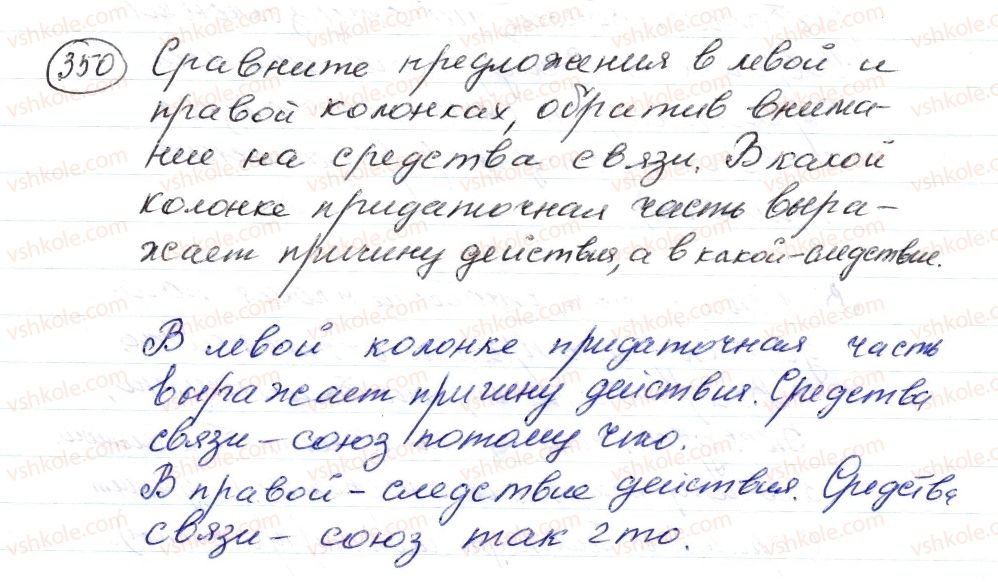 350 Сравните предложения в левой и
правой колонках, обратив внима-
ние на средства связи. В какой
колонке придаточная часть выра-
жает причину действия, а в какой-следствие.
В левой колонке придаточная часть
выражает причину действия. Средства
связи - союз потому что.
В правой - следствие действия. Средства
связи - союз так что.